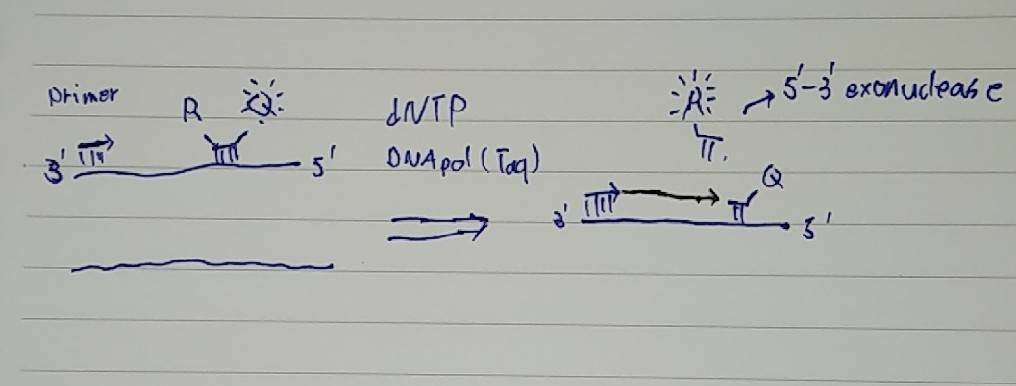 primer
R Q
3' 5'
dNTP
DNA pol (Taq)
R → 5'-3' exonuclease
Q
3' 5'